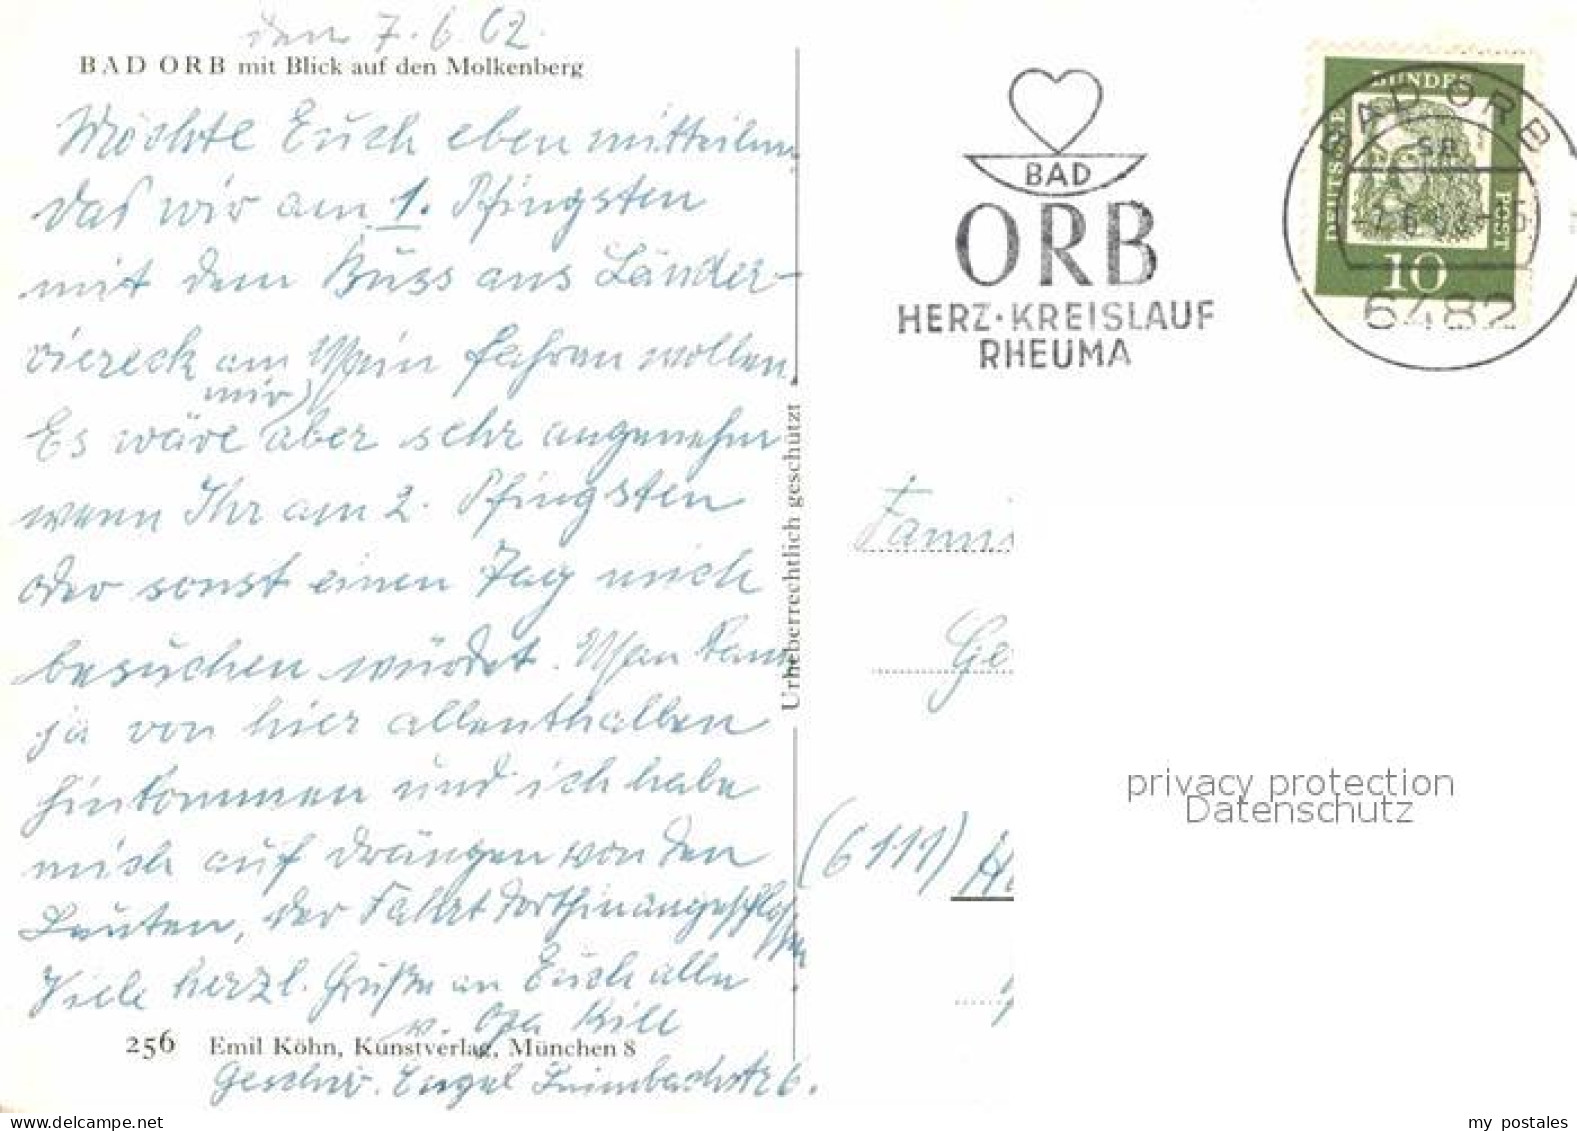 den 7.6.62.
BAD ORB mit Blick auf den Molkenberg
Möchte Euch eben mitteilen
das wir am 1. Pfingsten
mit dem Buss ans Länder-
viereck am Main fahren wollen.
mir
Es wäre aber sehr angenehm
wenn Ihr am 2. Pfingsten
oder sonst einen Tag mich
besuchen würdet. Man kann
ja von hier allenthalben
hinkommen und ich habe
mich auf drängen von den
Leuten, der Fahrt dorthin angeschlos-
sen.
Viele herzl. Grüße an Euch alle
v. Opa Kill
256 Emil Köhn, Kunstverlag, München 8
Geschw. Engel Leimbachstr 6.
Urheberrechtlich geschützt
BAD
ORB
HERZ·KREISLAUF
RHEUMA
DEUTSCHE BUNDESPOST
10
BAD ORB
6482
Fami
Ge
(6111)
privacy protection
Datenschutz
my postales
www.delcampe.net